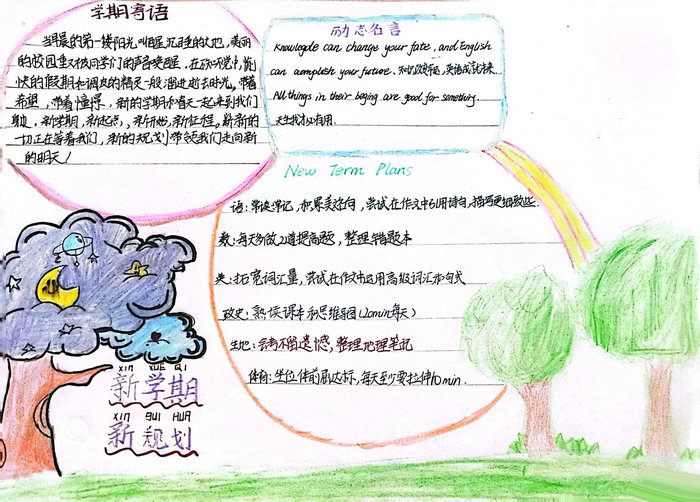 学期寄语
当晨的第一缕阳光叫醒沉睡的大地,美丽
的校园里又被同学们的声音唤醒。在不知不觉中,愉
快的假期如调皮的精灵一般溜进逝去时光。带着
希望,带着憧憬,新的学期和春天一起来到我们
身边。新学期,新起点,新开始,新征程。崭新的
一切正在等着我们,新的规划带领我们走向新
的明天!
励志名言
Knowlegde can change your fate, and English
can accmplish your future. 知识改变命运,英语成就未来.
All things in their beging are good for something.
天生我才必有用.
New Term Plans
语:常读常记,积累美好句,尝试在作文中引用诗句,描写更细致些.
数:每天多做2道提高题,整理错题本
英:拓宽词汇量,尝试在作文中运用高级词汇和句式
政史:熟读课本和思维导图(20min每天)
生地:会考不留遗憾,整理地理笔记
体育:坐位体前屈达标,每天至少要拉伸10min.
XIN XUE QI
新学期
XIN GUI HUA
新规划